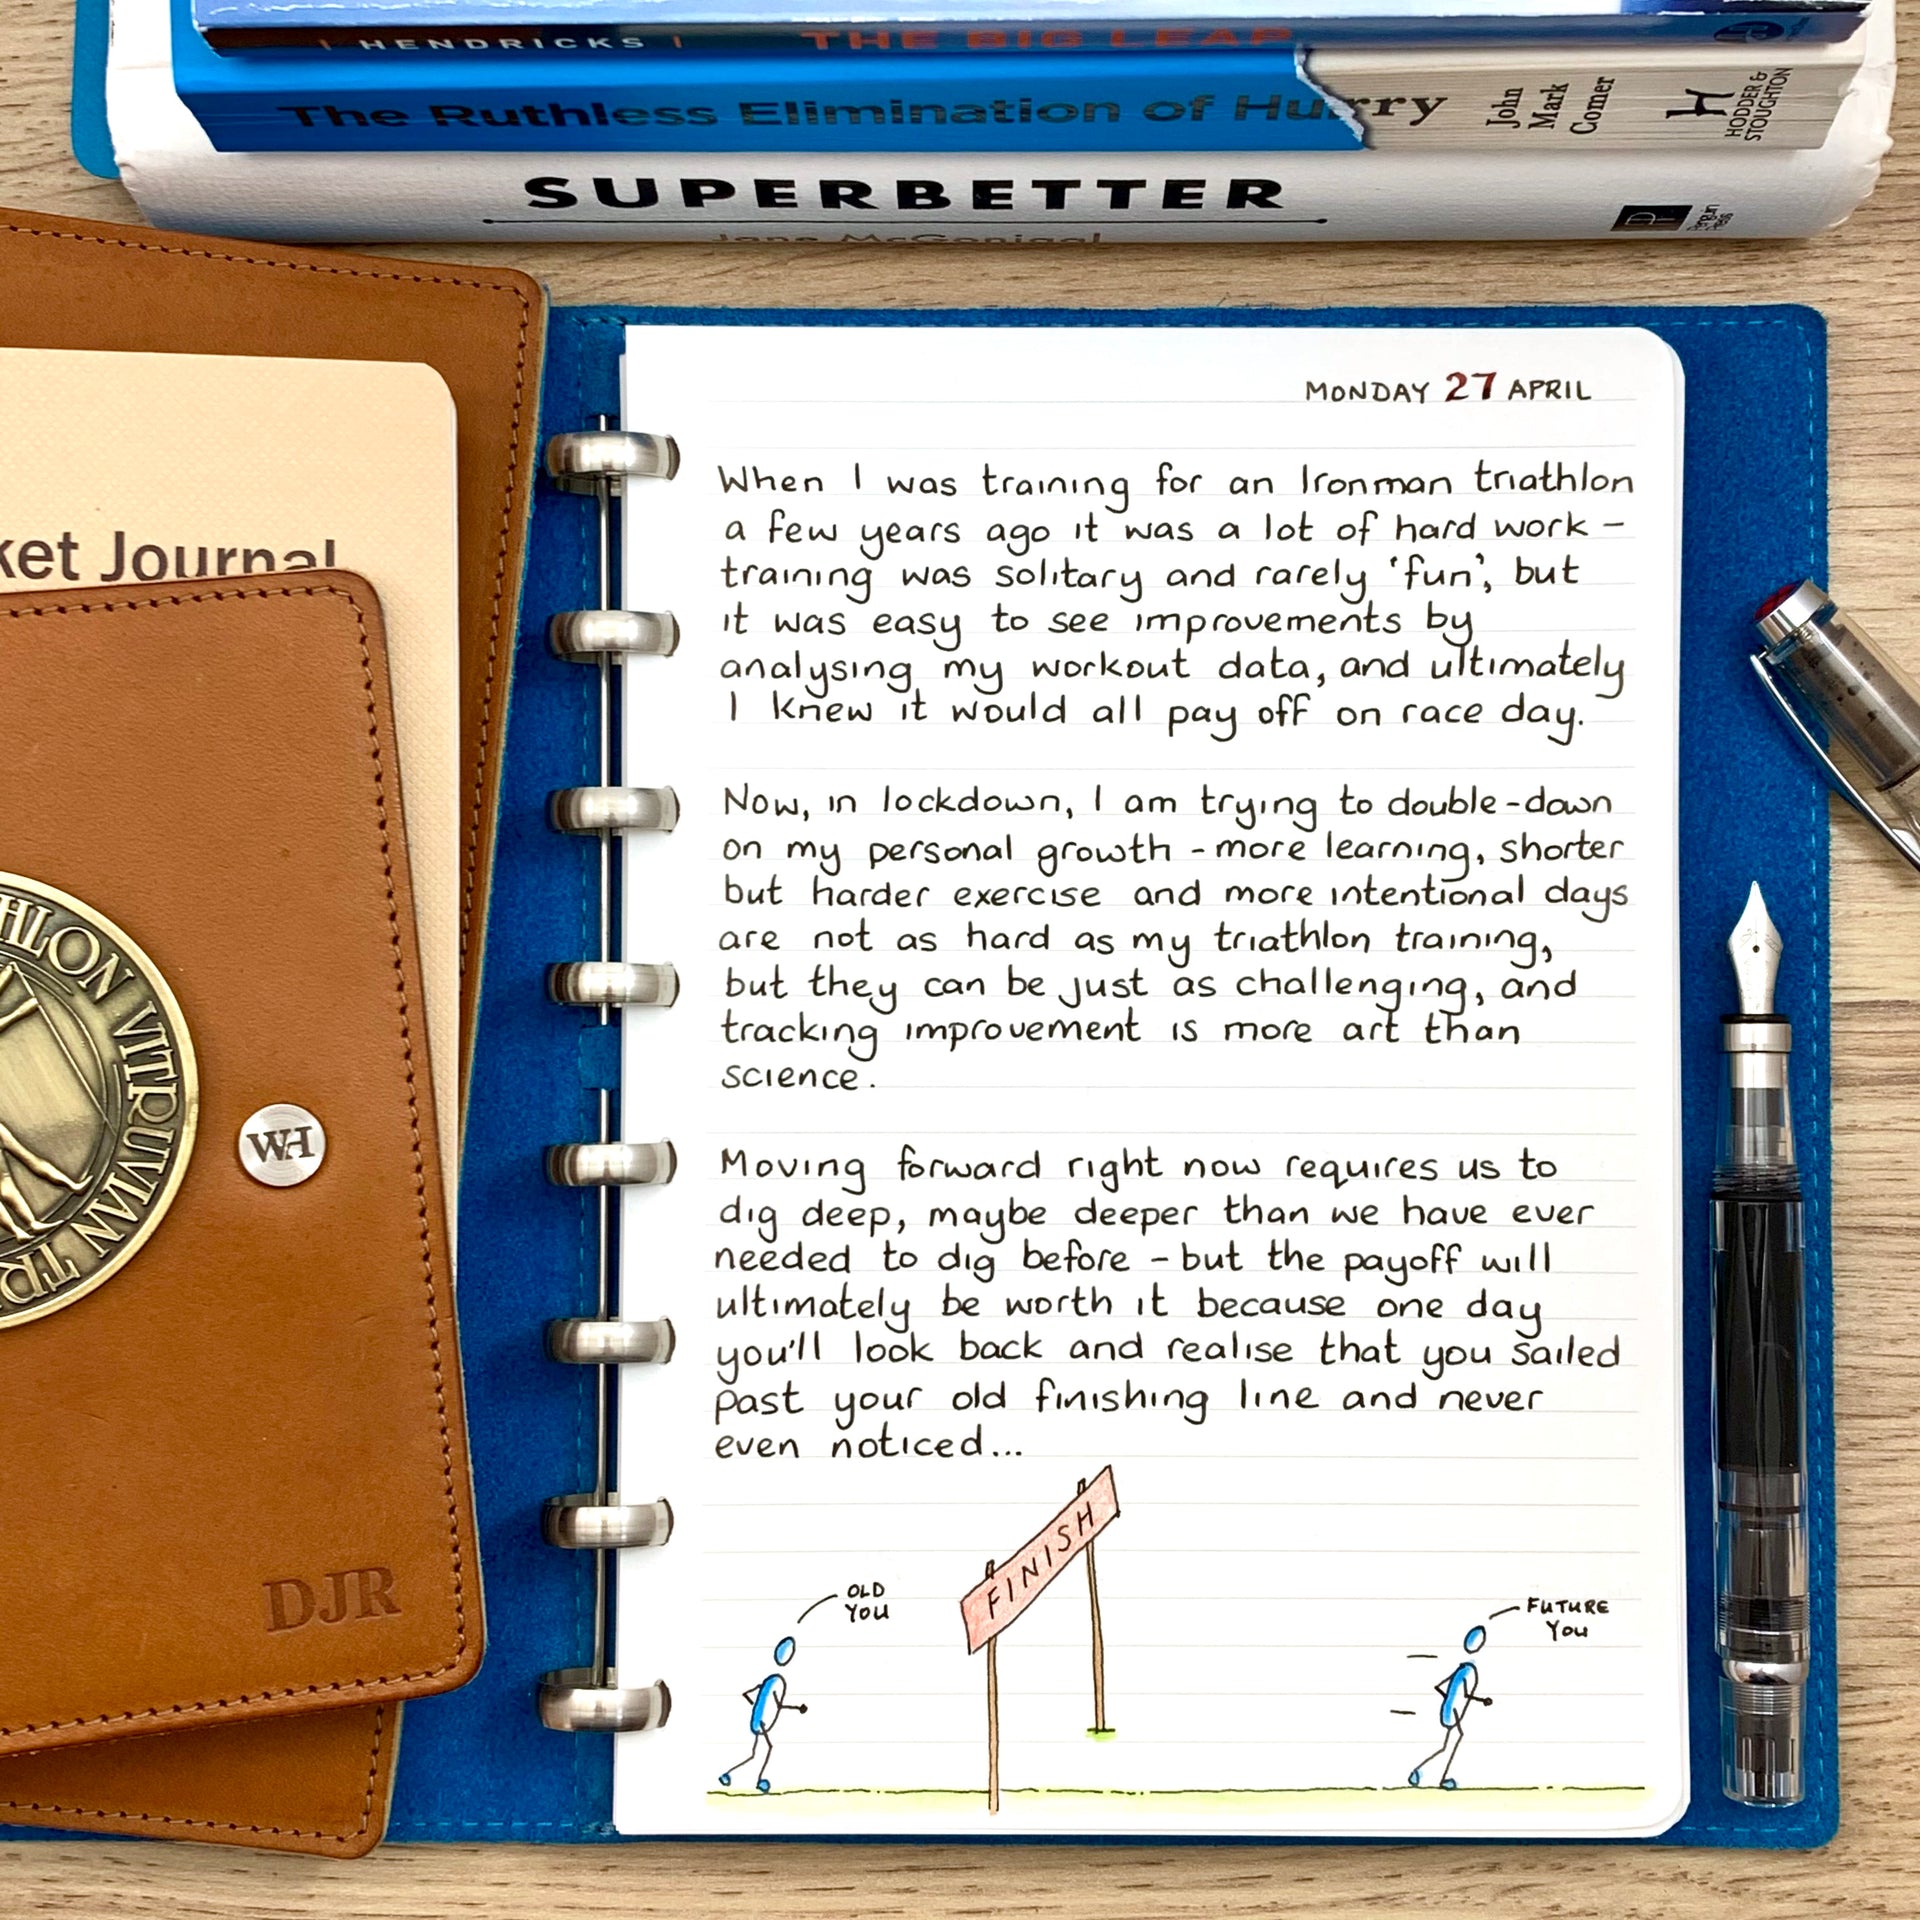 HENDRICKS THE BIG LEAP
The Ruthless Elimination of Hurry John Mark Comer HODDER & STOUGHTON
SUPERBETTER
Jane McGonigal
Penguin Press
ket Journal
HLON VITRUVIAN TR
WH
DJR
MONDAY 27 APRIL
When I was training for an Ironman triathlon
a few years ago it was a lot of hard work –
training was solitary and rarely 'fun', but
it was easy to see improvements by
analysing my workout data, and ultimately
I knew it would all pay off on race day.
Now, in lockdown, I am trying to double-down
on my personal growth - more learning, shorter
but harder exercise and more intentional days
are not as hard as my triathlon training,
but they can be just as challenging, and
tracking improvement is more art than
science.
Moving forward right now requires us to
dig deep, maybe deeper than we have ever
needed to dig before – but the payoff will
ultimately be worth it because one day
you'll look back and realise that you sailed
past your old finishing line and never
even noticed...
FINISH
OLD
YOU
FUTURE
YOU